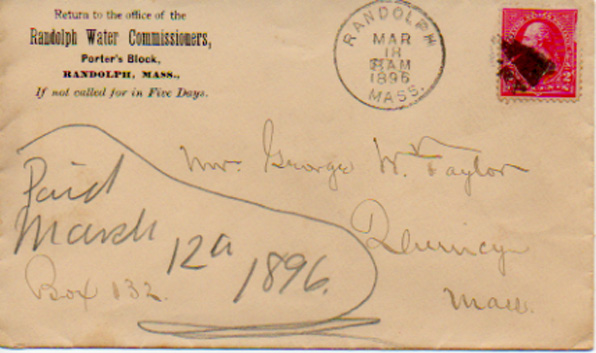 Return to the office of the
Randolph Water Commissioners,
Porter's Block,
RANDOLPH, MASS.,
If not called for in Five Days.
RANDOLPH
MAR
18
AM
1896
MASS.
Mr. George W. Taylor
Quincy
Mass.
Box 132.
Paid
March
12
1896.